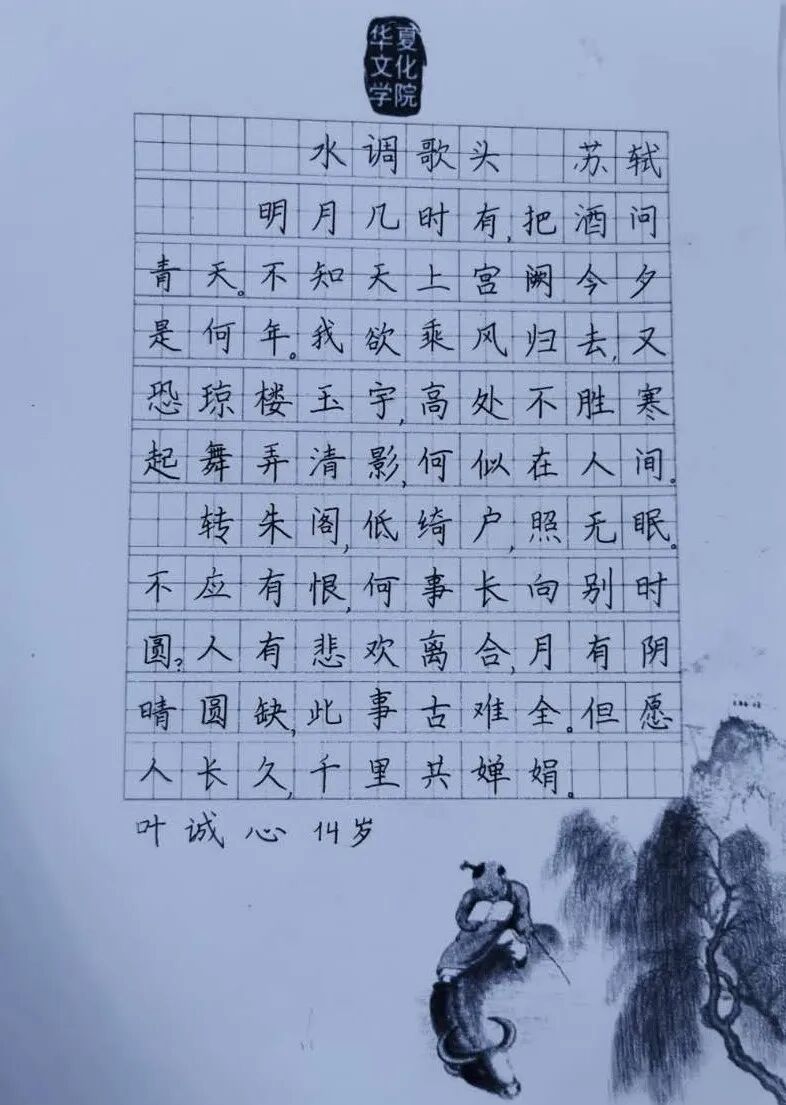 华夏
文化
学院
水调歌头 苏轼
明月几时有,把酒问
青天。不知天上宫阙今夕
是何年。我欲乘风归去,又
恐琼楼玉宇,高处不胜寒
起舞弄清影,何似在人间。
转朱阁,低绮户,照无眠。
不应有恨,何事长向别时
圆?人有悲欢离合,月有阴
晴圆缺,此事古难全。但愿
人长久,千里共婵娟。
叶诚心 14岁